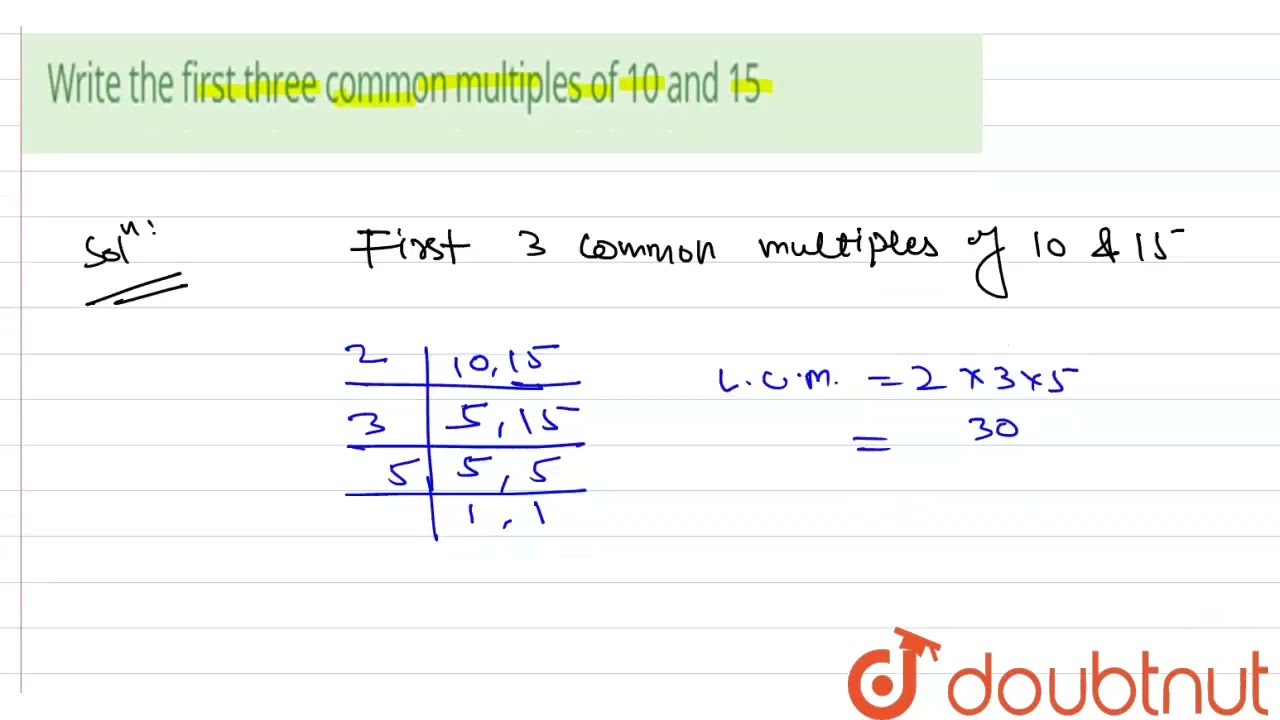 Write the first three common multiples of 10 and 15
Solⁿ: First 3 common multiples of 10 & 15
2 | 10, 15
3 | 5, 15
5 | 5, 5
1, 1
L.C.M. = 2 × 3 × 5
= 30
doubtnut